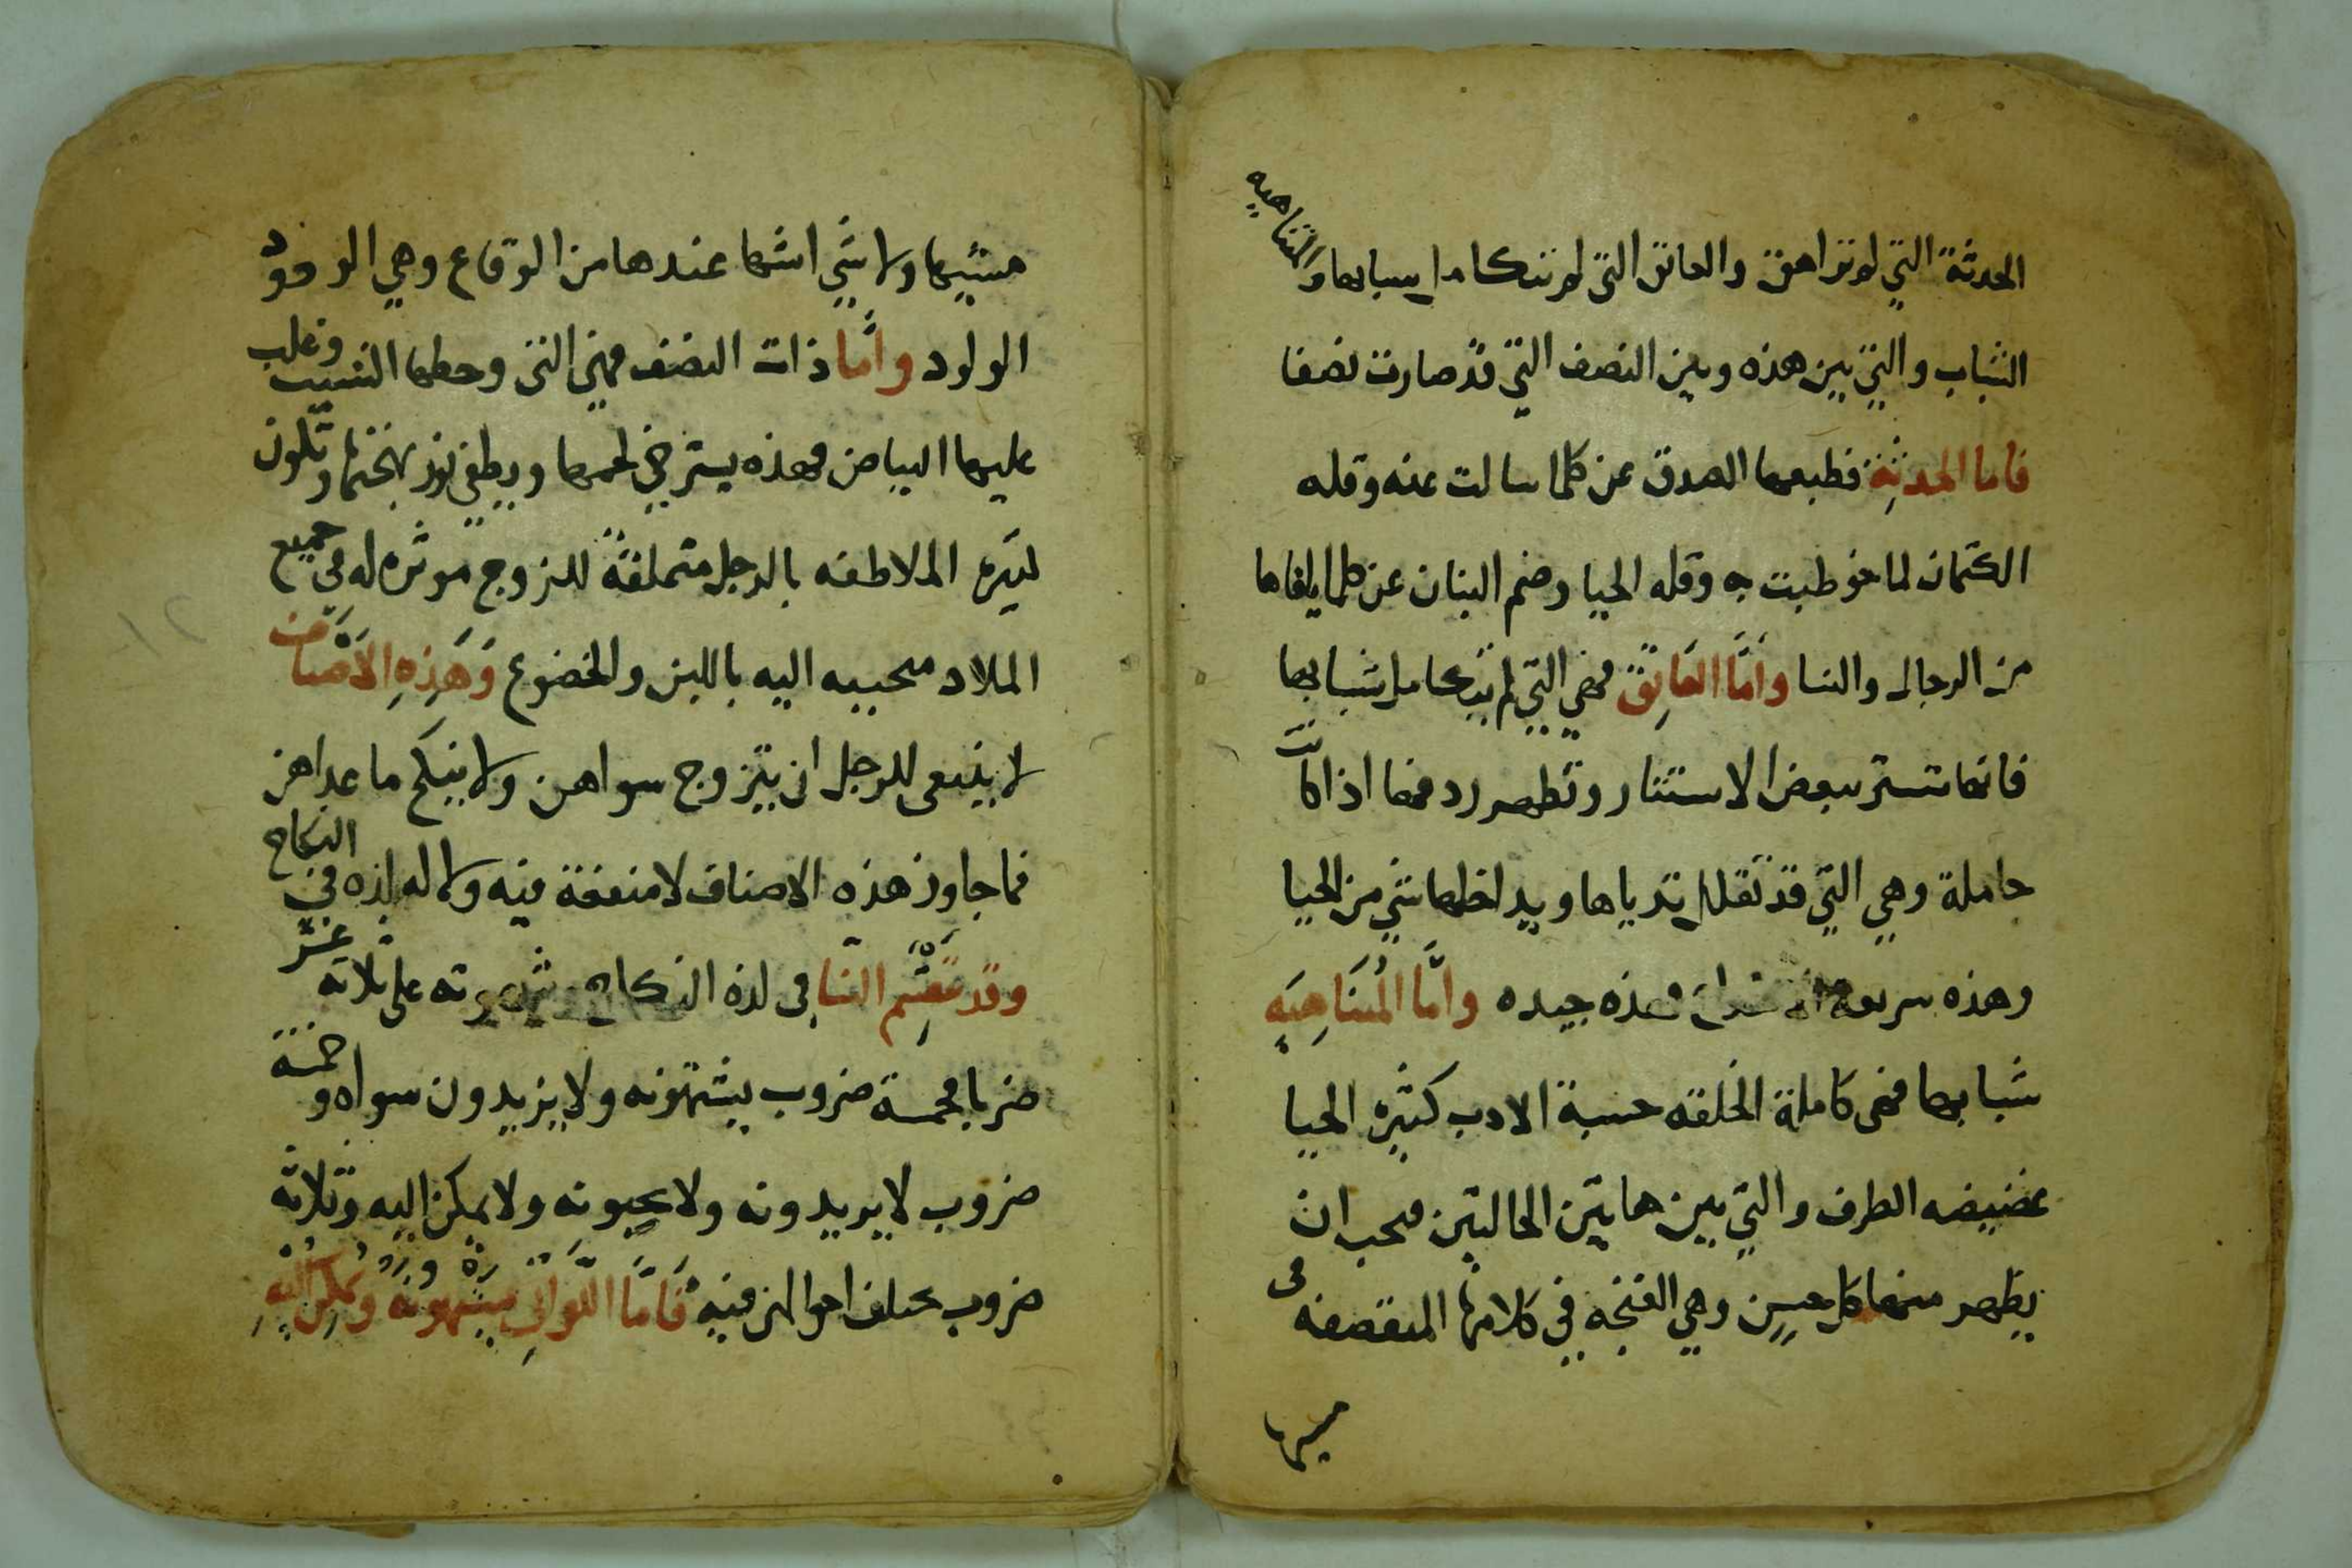 الحدثة التي لم تراهق والعاتق التي لم تتكامل سبابها والمتناهيه
الشباب والتي بين هذه وبين النصف التي قد صارت نصفا
فاما الحدثة فطبعها الصدق عن كلما سالت عنه وقله
الكتمان لما خوطبت به وقله الحيا وضم البنان عن كلما يلقاها
من الرجال والنسا وامَّا العَاتِق فهي التي لم تتكامل شبابها
فانها تستتر ببعض الاستتار وتظهر ردفها اذا كانت
حاملة وهي التي قد تقلل ثدياها ويداخلها شي من الحيا
وهذه سريعة فهذه جيده وامَّا المُتنَاهِيَه
شبابها فهى كاملة الخلقه حسنة الادب كثيره الحيا
غضيضه الطرف والتي بين هاتين الحالتين فتحب ان
يظهر منها كل حسن وهي الغنجه في كلامها المتقصفه فى
ميها
مشيها ولا شي اشها عندها من الوقاع وهي الودود
الولود وأمَّا ذات النصف فهي التى وخطها الشيب وغلب
عليها البياض فهذه يسترخي لحمها ويطفى نور بهجتها وتكون
كثيره الملاطفه بالرجل متملقة للزوج موثره له في جميع
الملاد متحببه اليه باللين والخضوع وَهَذِهِ الاَصناف
لا ينبغى للرجل ان يتزوج سواهن ولا ينكح ما عداهن
فما جاوز هذه الاصناف لا منفعة فيه ولا له لذه في النكاح
وقد تقسَّم النسا في لذه النكاح وشهوته على ثلاثه عشر
ضربا فخمسة ضروب يشتهونه ولا يزيدون سواه وخمسة
ضروب لا يريدونه ولا يحبونه ولا يمكن اليه وثلاثه
ضروب تختلف احوالهن فيه فَامَّا اللَّوَاتِي يشتهونه ويمكن اليه